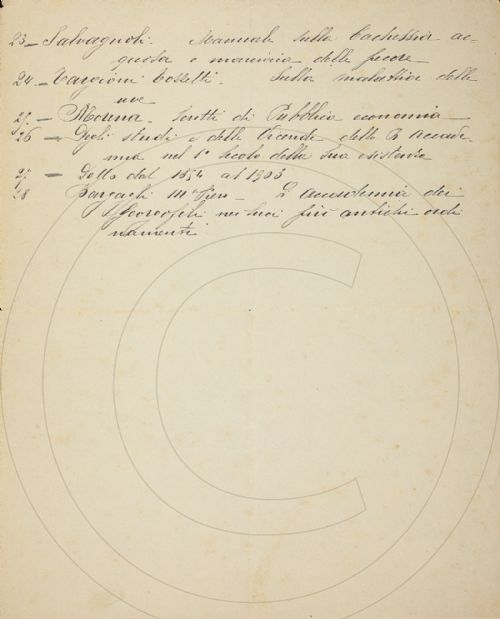 23_ Salvagnoli. Manuale sulla Cachessia ac-
quosa o marciaia delle pecore_
24_ Targioni Tozzetti_ Sulla malattia delle
uve
25_ Morena. Scritti di Pubblica economia_
26 _ Degli studi e delle Vicende della R. Accade-
mia nel 1° secolo della sua esistenza
27 _ dal 1854 al 1903
28 M. Pier_ L'accademia dei
Georgofili nei suoi più antichi ordi
namenti.